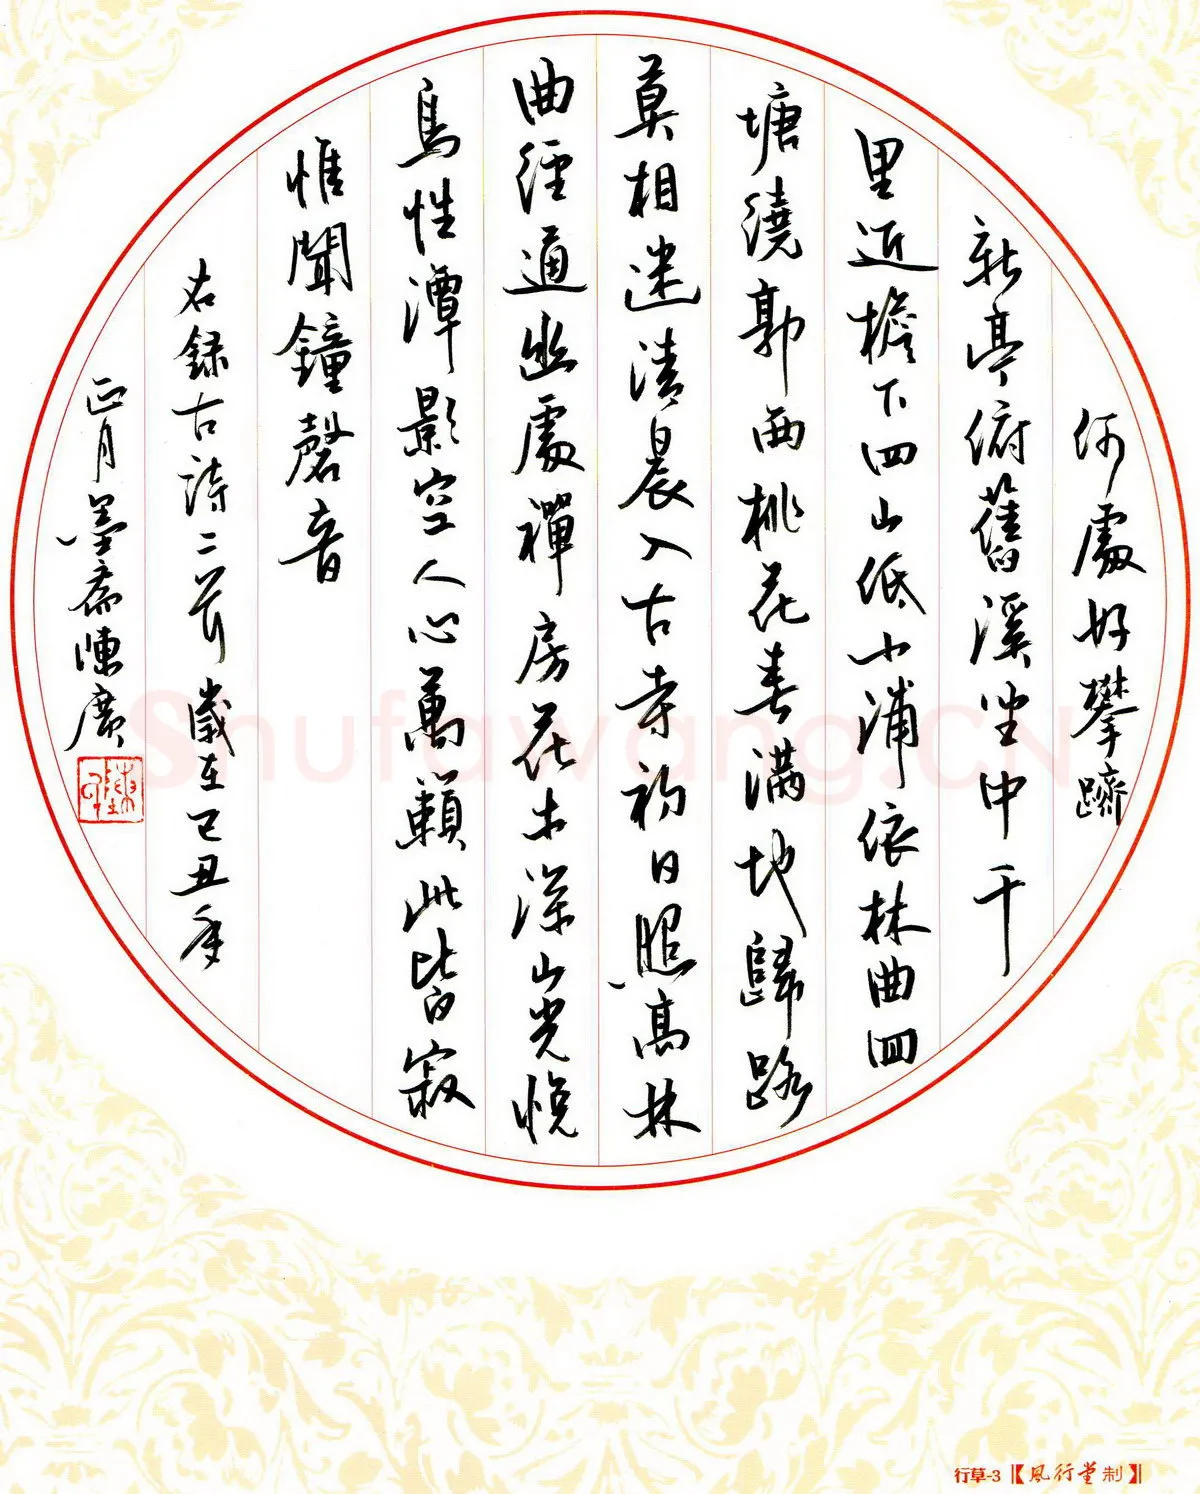 何處好攀躋
新亭俯舊溪坐中千
里近檐下四山低小浦依林曲回
塘繞郭西桃花春滿地歸路
莫相迷清晨入古寺初日照高林
曲徑通幽處禪房花木深山光悅
鳥性潭影空人心萬籟此皆寂
惟聞鐘磬音
右錄古詩二首歲在己丑年
正月墨齋陳廣
Shufawang.CN
行草-3【風行堂制】